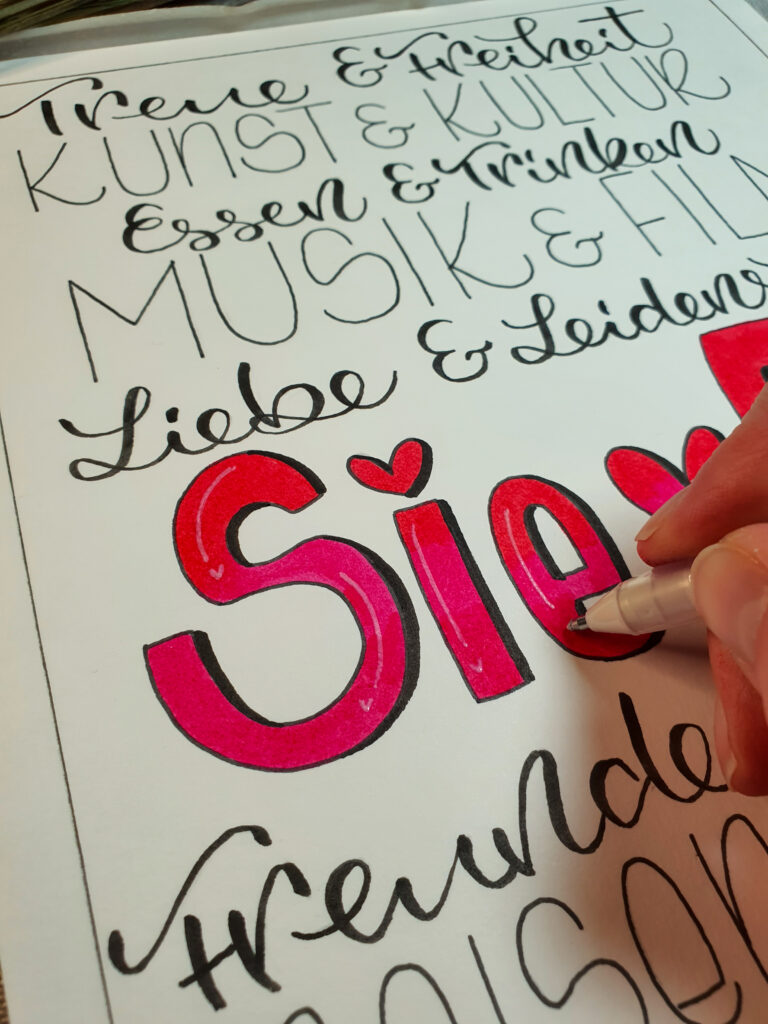 Treue & Freiheit
KUNST & KULTUR
Essen & Trinken
MUSIK & FIL
Liebe & Leidens
Sie
Freunde
eisen